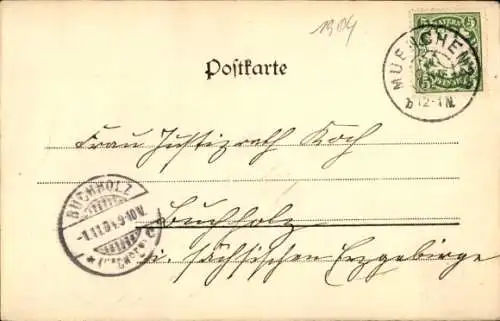 1904
BAYERN
5
5
MUENCHEN
12-1 N.
Postkarte
Frau Justizrath Koch
BUCHHOLZ
-1.11.04.9-10V.
Buchholz
i. sächsischen Erzgebirge